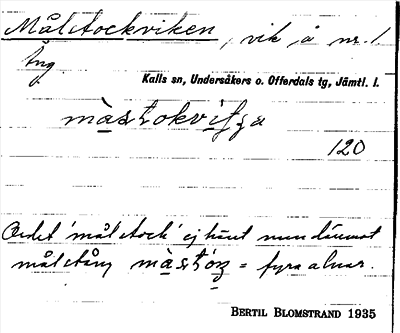 Målstockviken, vik å nr. 1
Äng.
Kalls sn, Undersåkers o. Offerdals tg, Jämtl. l.
màstokvìʃʒa
120
Ordet 'målstock' ej hänt men däremot
målstång màstóŋ = fyra alnar.
BERTIL BLOMSTRAND 1935